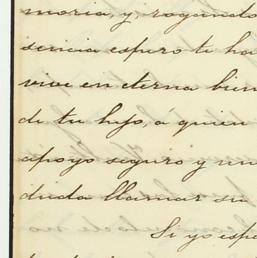 moria, y, rogando
sencia espero te ha
vive en eterna bien
de tu hijo, á quien
apoyo seguro y un
duda llamar su
Si yo espe